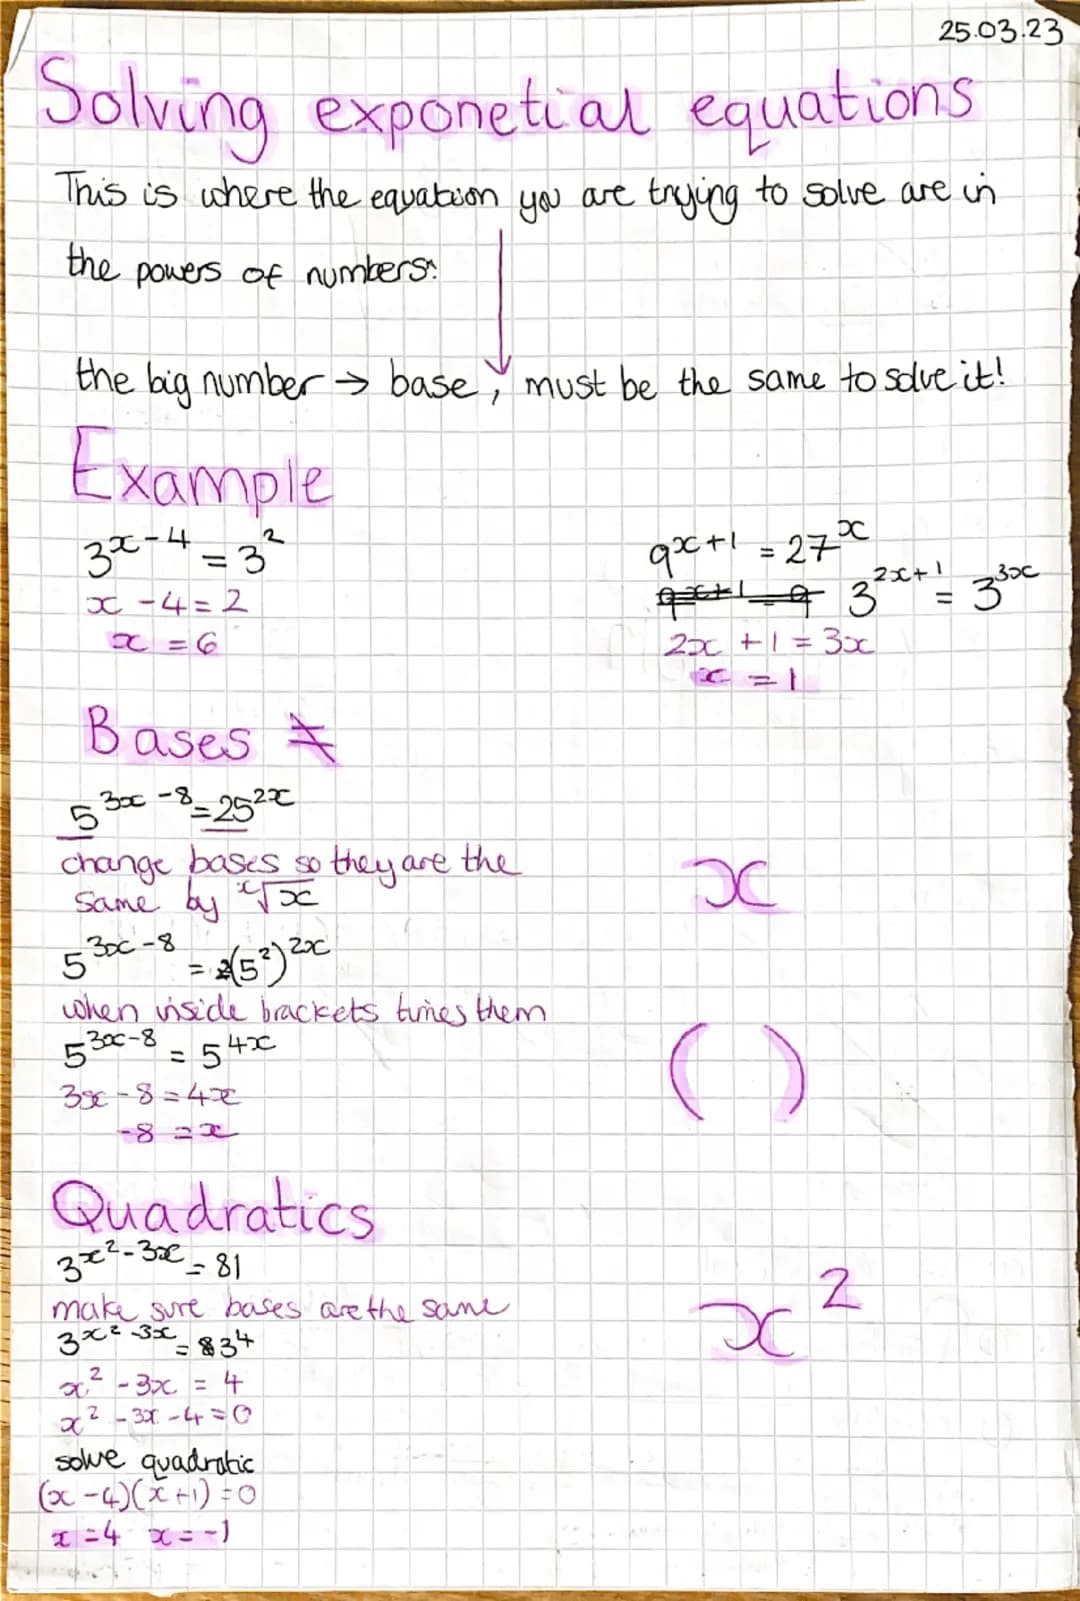 25.03.23
Solving exponetial equations
This is where the equation you are trying to solve are in
the powers of numbers.
the big number → base, must be the same to solve it!
Example
3^{x-4} = 3^2
x - 4 = 2
x = 6
9^{x+1} = 27^x
3^{2x+1} = 3^{3x}
2x + 1 = 3x
x = 1
Bases ≠
5^{3x-8} = 25^{2x}
change bases so they are the
same by ^x√x
x
5^{3x-8} = (5^2)^{2x}
when inside brackets times them
5^{3x-8} = 5^{4x}
( )
3x - 8 = 4x
-8 = x
Quadratics
3^{x^2-3x} = 81
make sure bases are the same
x^2
3^{x^2-3x} = 3^4
x^2 - 3x = 4
x^2 - 3x - 4 = 0
solve quadratic
(x - 4)(x + 1) = 0
x = 4 x = -1